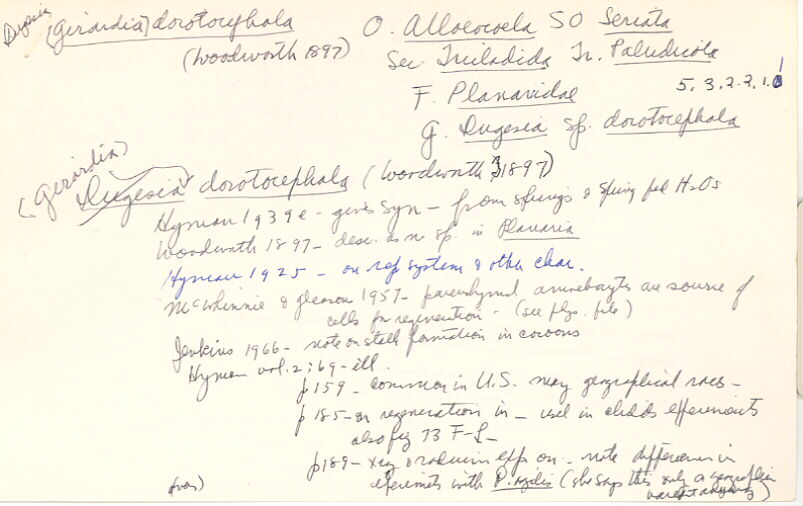 Dugesia (Girardia) dorotocephala
(Woodworth 1897)
O. Alloeocoela SO Seriata
Sec. Tricladida Tr. Paludicola
F. Planaridae 5.3.2.2.1.
G. Dugesia sp. dorotocephala
(Girardia)
Dugesia dorotocephala (Woodworth 1897)
Hyman 1939e - gives syn - from springs & spring fed H2Os
Woodworth 1897 - desc. as n. sp. in Planaria
Hyman 1925 - on rep system & other char.
McWhinnie & Gleason 1957 - parenchymal amoebocytes are source of
cells for regeneration - (see phys. file)
Jenkins 1966 - note on stalk formation in cocoons
Hyman vol. 2: 69 - ill.
p159 - common in U.S. many geographical races -
p185 - on regeneration in - used in childs experiments
also fig 73 F-
p189 - xray & radium eff on - note difference in
experiments with P. agilis (she says this only a geographic
variant anyway)
(over)